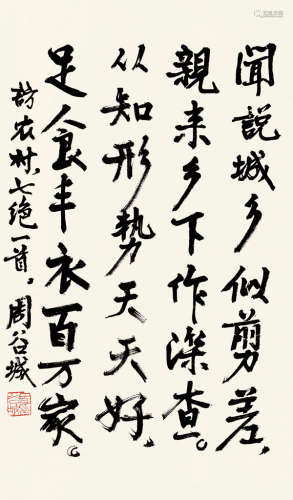 聞説城乡似剪差，
親来乡下作深查。
从知形勢天天好，
足食丰衣百万家。
访农村，七绝一首。周谷城